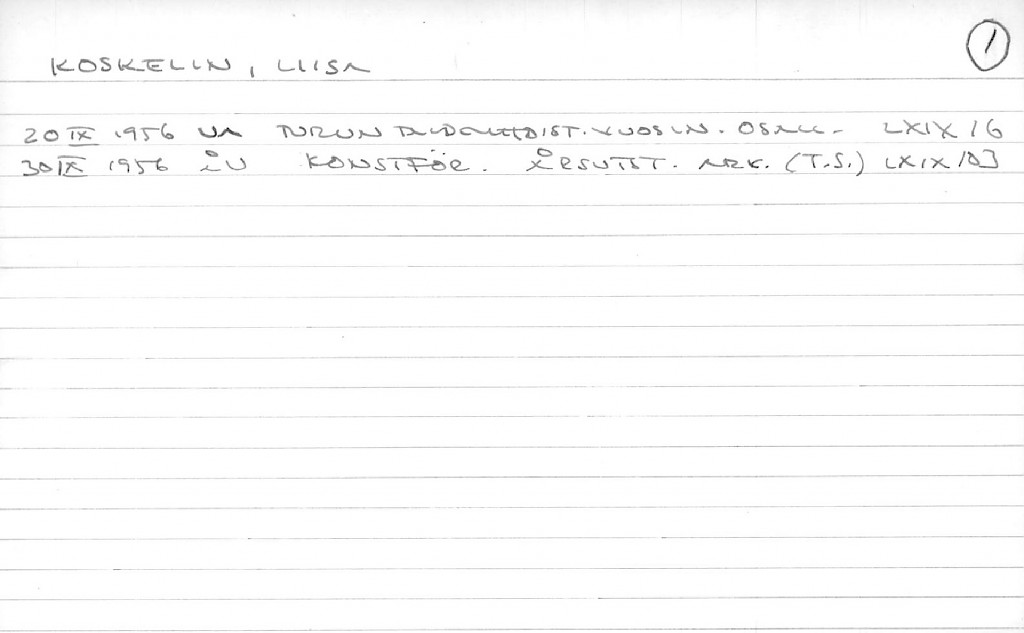 1
KOSKELIN, LIISA
20 IX 1956 UA TURUN TAIDEYHDIST. VUOSIN. OSALL. LXIX / 6
30 IX 1956 ÅU KONSTFÖR. ÅRSUTST. ARK. (T.S.) LXIX / 83